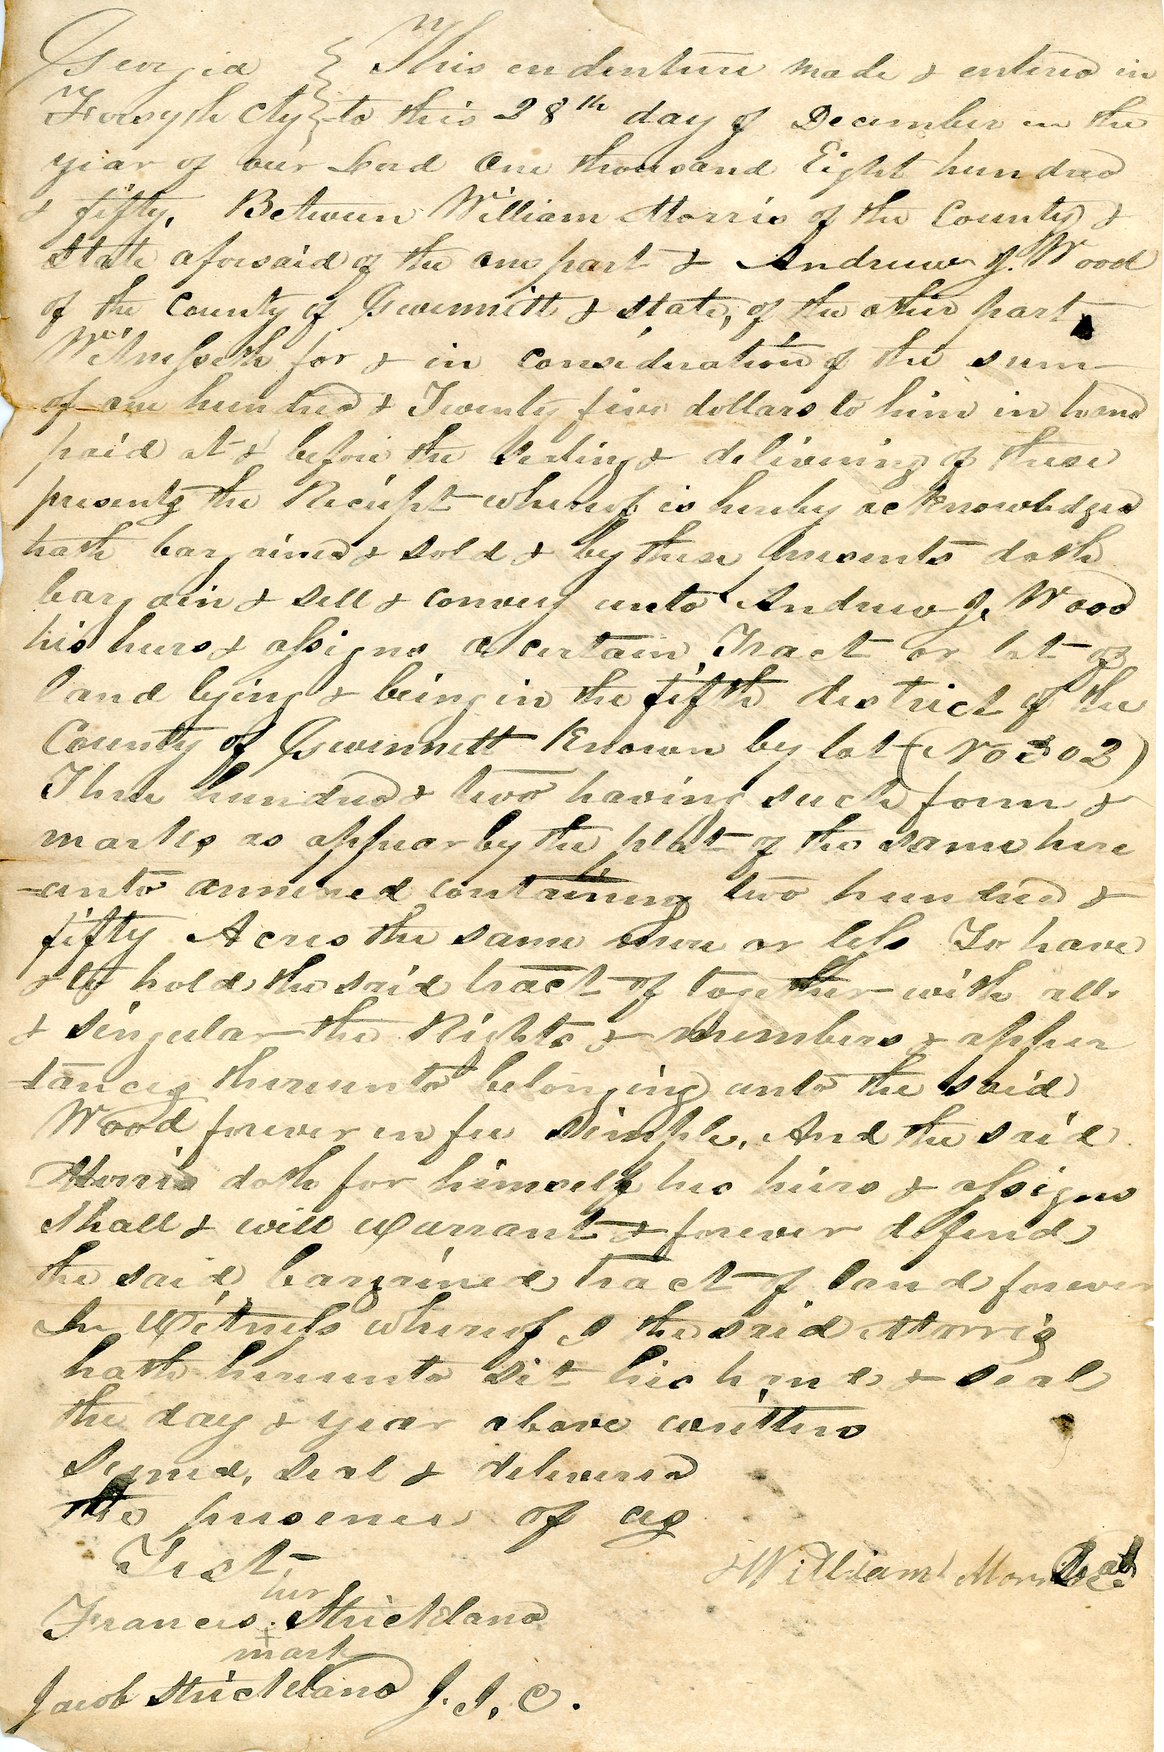 Georgia } This endenture made & entered in
Forsyth Cty } to this 28th day of December in the
year of our Lord One thousand Eight hundred
& fifty, Between William Morris of the County &
State aforsaid of the one part & Andrew J. Wood
of the County of Gwinnett & state, of the other part
Witnesseth for & in consideration of the sum
of one hundred & Twenty five dollars to him in hand
paid at & before the sealing & delivering of these
presents the Reciept whereof is hereby acknowledged
hath bargained & sold & by these presents doth
bargain & sell & convey unto Andrew J. Wood
his heirs & assigns a certain Tract or lot of
land lying & being in the fifth district of the
County of Gwinnett Known by lot (No 302)
Three hundred & two having such form &
marks as appear by the plat of the same here
unto annexed containing two hundred &
fifty Acres the same more or less To have
& to hold the said tract of together with all
& singular the Rights & members & apper
tances thereunto belonging unto the said
Wood forever in fee simple, And the said
Morris doth for himself his heirs & assigns
shall & will warrant & forever defend
the said bargained tract of land forever
In Witness whereof I the said Morris
hath hereunto set his hand & seal
the day & year above written
Signed, seal & delivered
the presence of
Test William Morris Seal
her
Francis Strickland
x
mark
Jacob Strickland J. I. C.